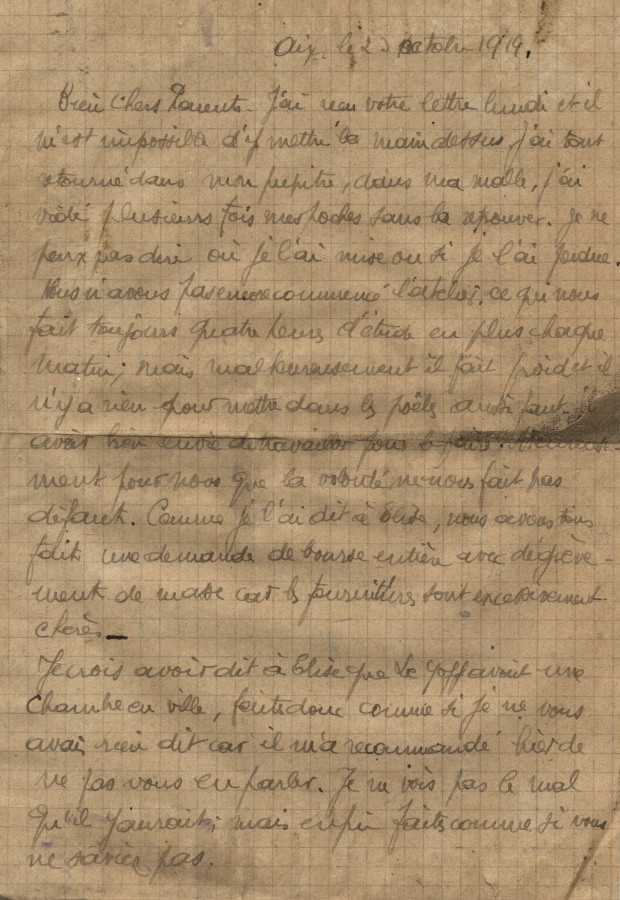 Aix. le 2 octobre 1919.
Bien Chers Parents - J'ai reçu votre lettre lundi et il
m'est impossible d'y mettre la main dessus, j'ai tout
retourné dans mon pupitre, dans ma malle, j'ai
vidé plusieurs fois mes poches sans la repouver. je ne
peux pas dire où je l'ai mise ou si je l'ai perdue.
Nous n'avons pas encore commencé l'atelier, ce qui nous
fait toujours quatre heures d'étude en plus chaque
matin; mais malheureusement il fait froid et il
n'y a rien pour mettre dans les poêles aussi faut-il
avoir bien envie de travailler pour le faire. Heureuse-
ment pour nous que la volonté ne nous fait pas
défaut. Comme je l'ai dit à Elise, nous avons tous
fait une demande de bourse entière avec dégrève-
ment de masse car les sont excessivement
chères
Je crois avoir dit à Elise que Le Goff avait une
chambre en ville, faites donc comme si je ne vous
avais rien dit car il m'a recommandé hier de
ne pas vous en parler. Je ne vois pas le mal
qu'il y aurait; mais enfin faites comme si vous
ne saviez pas.